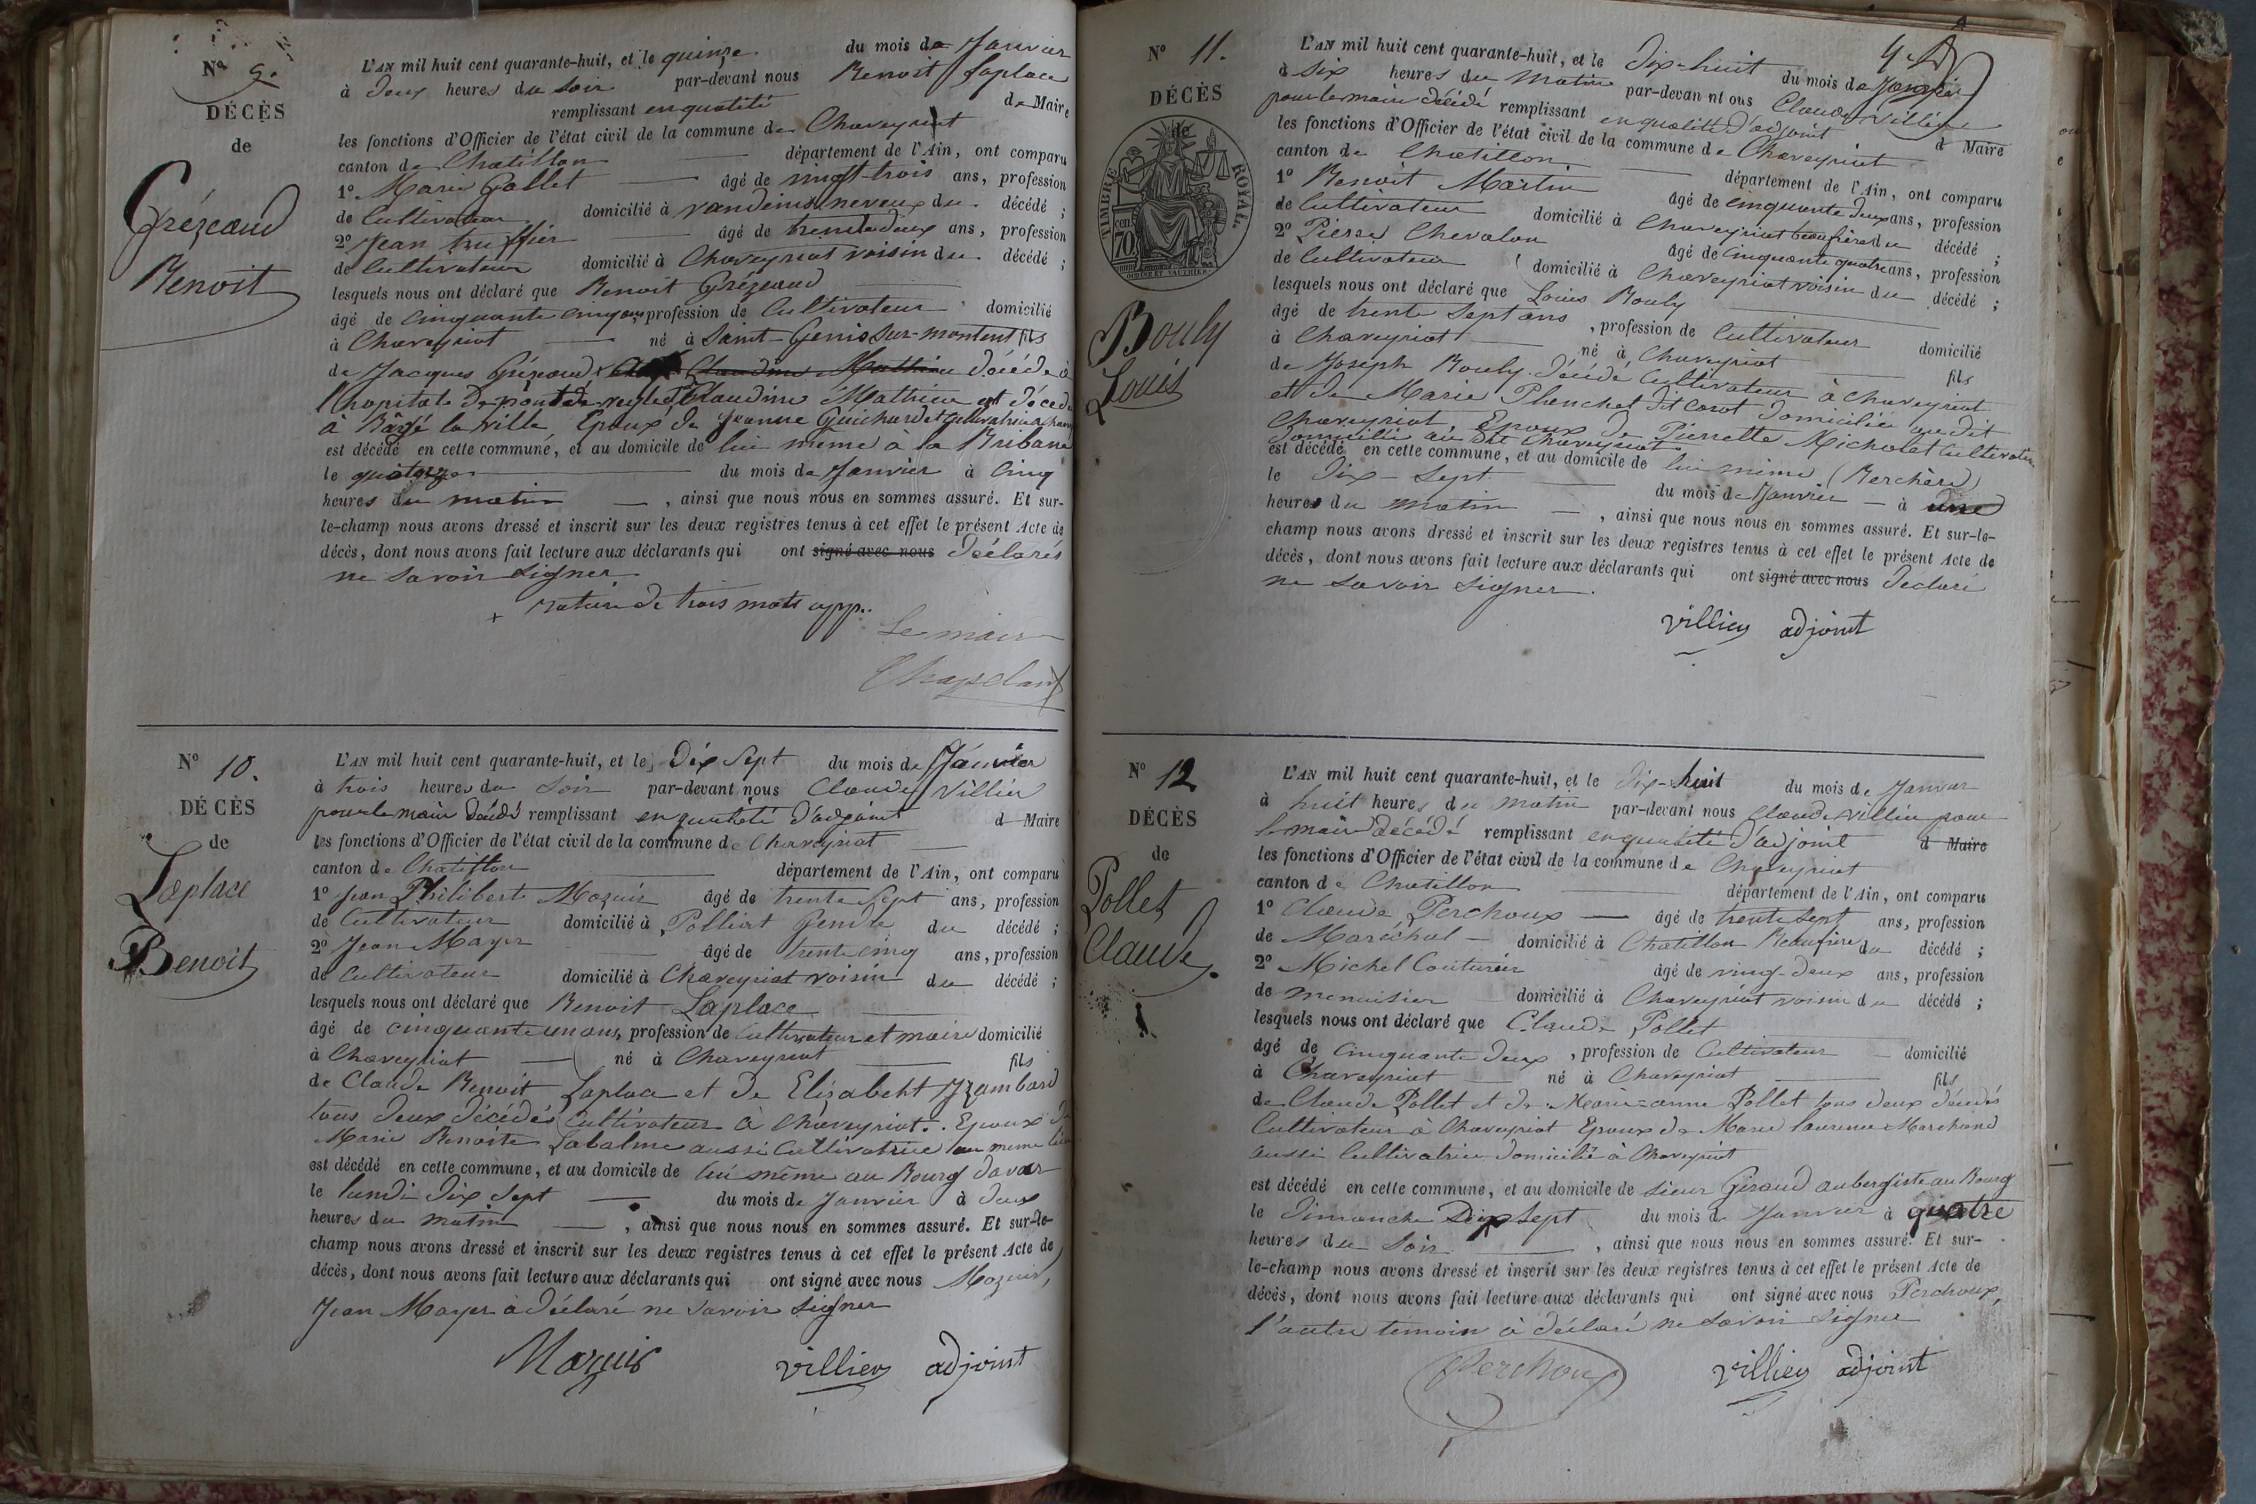 N° 9.
DÉCÈS
de
Grézaud
Benoit
L'AN mil huit cent quarante-huit, et le quinze du mois de Janvier
à deux heures du soir par-devant nous Benoit Laplace
remplissant en qualité de Maire
les fonctions d'Officier de l'état civil de la commune de Chaveyriat
canton de Chatillon département de l'Ain, ont comparu
1° Marie Gallet âgé de vingt-trois ans, profession
de Cultivateur domicilié à vandeins neveux du décédé ;
2° Jean truffier âgé de trente deux ans, profession
de Cultivateur domicilié à Chaveyriat voisin du décédé ;
lesquels nous ont déclaré que Benoit Grézaud
âgé de cinquante cinq ans, profession de Cultivateur domicilié
à Chaveyriat né à Saint-Genis Sur-menthont fils
de Jacques Grézaud Claudine Mathieu décédé à
l'hopitale de pont de veyle et Claudine Mathieu est décédé
à Bâgé la ville Epoux de Jeanne Guichardet Cultivatrice
est décédé en cette commune, et au domicile de lui meme à la Bribane
le quatorze du mois de Janvier à cinq
heures du matin , ainsi que nous nous en sommes assuré. Et sur-
le-champ nous avons dressé et inscrit sur les deux registres tenus à cet effet le présent Acte de
décès, dont nous avons fait lecture aux déclarants qui ont signé avec nous déclarés
ne savoir signer
+ rature de trois mots app.
Le maire
Chapelan
N° 10.
DÉCÈS
de
Laplace
Benoit
L'AN mil huit cent quarante-huit, et le Dix Sept du mois de Janvier
à trois heures du Soir par-devant nous Claude Villier
pour le maire décédé remplissant en qualité d'adjoint d Maire
les fonctions d'Officier de l'état civil de la commune de Chaveyriat
canton de Chatillon département de l'Ain, ont comparu
1° Jean Philibert Mozuis âgé de trente Sept ans, profession
de Cultivateur domicilié à Polliat Gendre du décédé ;
2° Jean Mayer âgé de trente cinq ans, profession
de Cultivateur domicilié à Chaveyriat voisin du décédé ;
lesquels nous ont déclaré que Benoit Laplace
âgé de cinquante un ans, profession de Cultivateur et maire domicilié
à Chaveyriat né à Chaveyriat fils
de Claude Benoit Laplace et de Elisabeht Yzambard
tous deux décédés Cultivateur à Chaveyriat. Epoux de
Marie Benoite Labalme aussi Cultivatrice au meme lieu
est décédé en cette commune, et au domicile de lui même au Bourg
le lundi dix Sept du mois de Janvier à deux
heures du matin , ainsi que nous nous en sommes assuré. Et sur-le-
champ nous avons dressé et inscrit sur les deux registres tenus à cet effet le présent Acte de
décès, dont nous avons fait lecture aux déclarants qui ont signé avec nous Mozuis,
Jean Mayer à déclaré ne savoir signer
Mozuis villier adjoint
N° 11.
DÉCÈS
de
TIMBRE ROYAL
cen. 70
Bouly
Louis
L'AN mil huit cent quarante-huit, et le Dix-huit du mois de Janvier
à Six heures du matin par-devan nt ous Claude Villier
pour le maire décédé remplissant en qualité d'adjoint d Maire
les fonctions d'Officier de l'état civil de la commune de Chaveyriat
canton de Chatillon. département de l'Ain, ont comparu
1° Benoit Martin âgé de cinquante deux ans, profession
de Cultivateur domicilié à Chaveyriat beaufrère du décédé ;
2° Pierre Chevalon âgé de cinquante quatre ans, profession
de Cultivateur domicilié à Chaveyriat voisin du décédé ;
lesquels nous ont déclaré que Louis Bouly
âgé de trente Sept ans , profession de Cultivateur domicilié
à Chaveyriat né à Chaveyriat fils
de Joseph Bouly décédé Cultivateur à Chaveyriat
et de Marie Planchet dit Cosot domiciliée audit
Chaveyriat Epoux de Pierrette Micholet Cultivatrice
domiciliée au dit Chaveyriat
est décédé en cette commune, et au domicile de lui même (Berchère)
le Dix-Sept du mois de Janvier à une
heures du matin , ainsi que nous nous en sommes assuré. Et sur-le-
champ nous avons dressé et inscrit sur les deux registres tenus à cet effet le présent Acte de
décès, dont nous avons fait lecture aux déclarants qui ont signé avec nous déclaré
ne savoir signer.
villier adjoint
N° 12
DÉCÈS
de
Pollet
Claude.
L'AN mil huit cent quarante-huit, et le dix-huit du mois de Janvier
à huit heures du matin par-devant nous Claude Villier pour
le maire décédé remplissant en qualité d'adjoint d Maire
les fonctions d'Officier de l'état civil de la commune de Chaveyriat
canton de Chatillon département de l'Ain, ont comparu
1° Claude Perchoux âgé de trente Sept ans, profession
de Maréchal domicilié à Chatillon Beaufrère du décédé ;
2° Michel Couturier âgé de vingt-deux ans, profession
de menuisier domicilié à Chaveyriat voisin du décédé ;
lesquels nous ont déclaré que Claude Pollet
âgé de cinquante deux , profession de Cultivateur domicilié
à Chaveyriat né à Chaveyriat fils
de Claude Pollet et de Marie-anne Pollet tous deux décédés
Cultivateur à Chaveyriat Epoux de Marie laurence Marchand
aussi Cultivatrice domicilié à Chaveyriat
est décédé en cette commune, et au domicile de sieur Giraud aubergiste au Bourg
le Dimanche Dix Sept du mois de Janvier à quatre
heures du Soir , ainsi que nous nous en sommes assuré. Et sur-
le-champ nous avons dressé et inscrit sur les deux registres tenus à cet effet le présent Acte de
décès, dont nous avons fait lecture aux déclarants qui ont signé avec nous Perchoux,
l'autre temoin à déclaré ne savoir signer
Perchoux villier adjoint